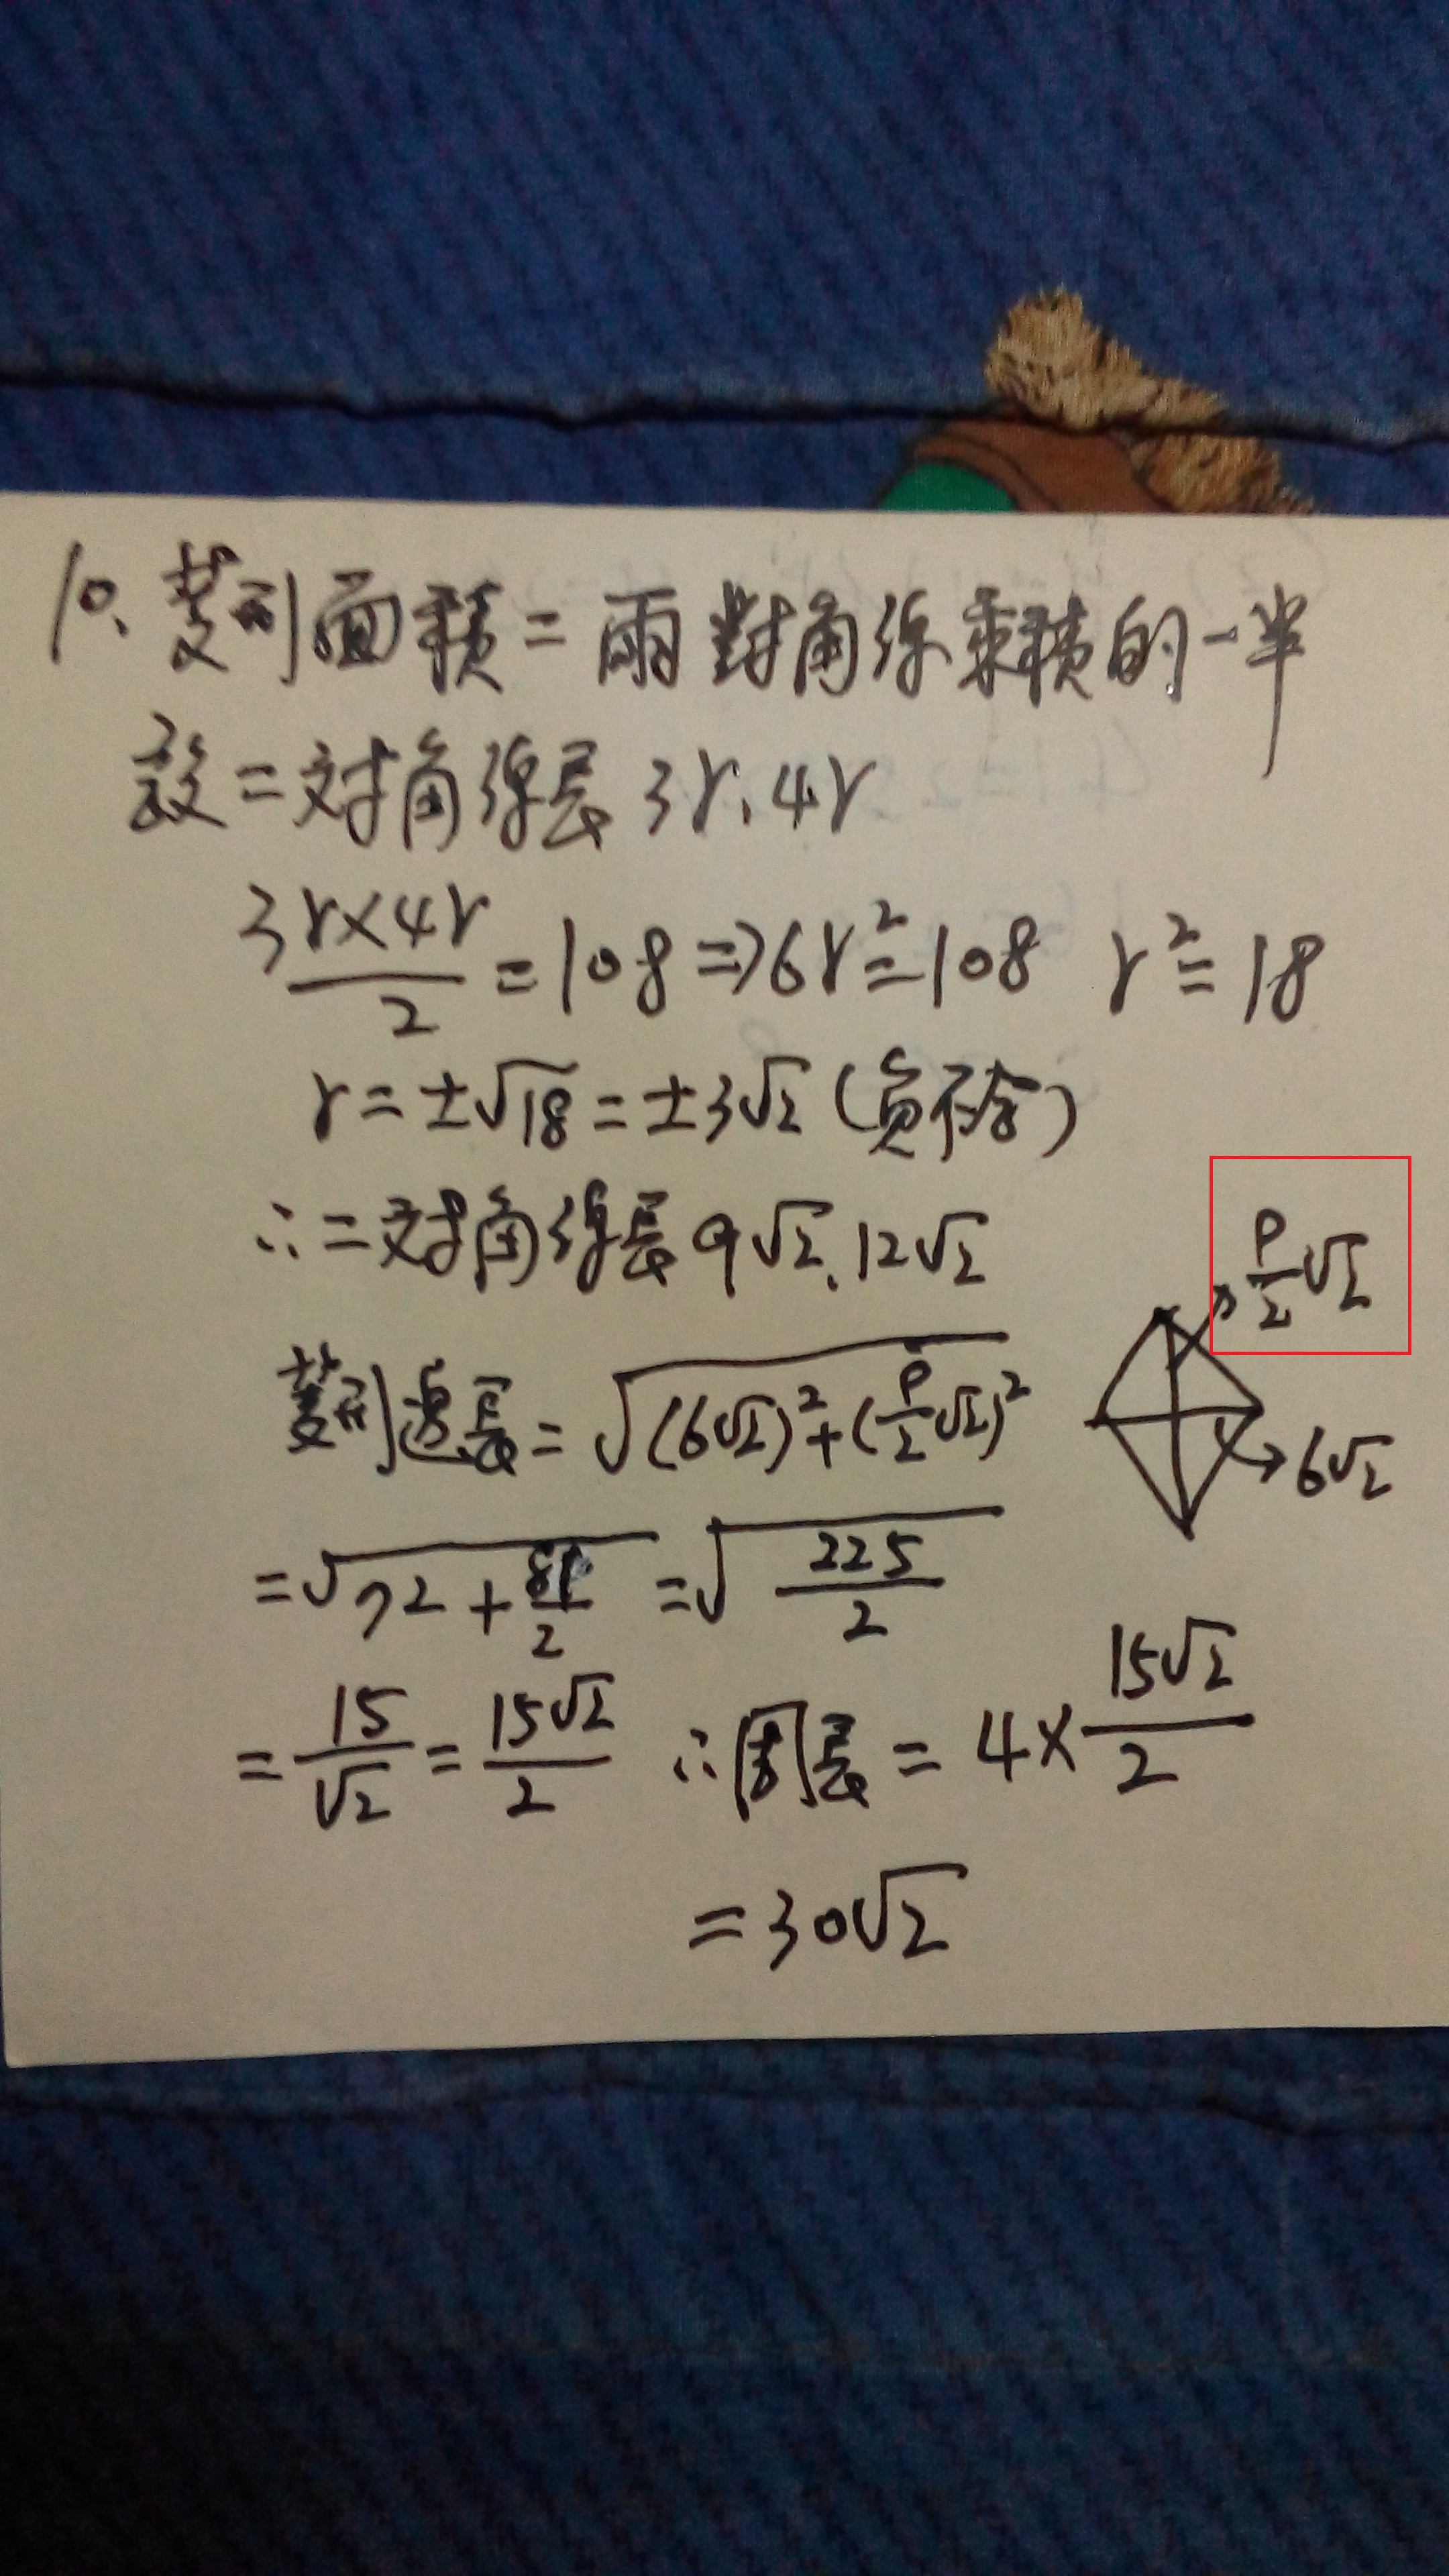 10. 菱形面積=兩對角線乘積的一半
設二対角線長 3r、4r
3r×4r/2 = 108 ⇒ 6r² = 108 r² = 18
r = ±√18 = ±3√2 (負不合)
∴二対角線長 9√2、12√2
9/2√2
菱形邊長 = √((6√2)² + (9/2√2)²)
6√2
= √(72 + 81/2) = √(225/2)
= 15/√2 = 15√2/2 ∴周長 = 4 × 15√2/2
= 30√2